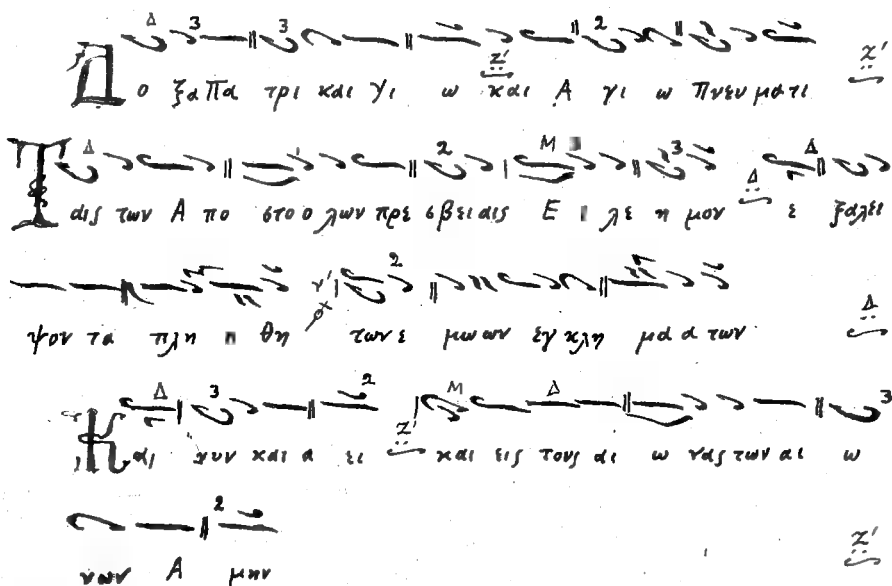 Δο ξα Πα τρι και Υι ω και Α γι ω Πνευ μα τι
Ταις των Α πο στο ο λων πρε σβει αις Ε ι λε η μον ε ξα λει
ψον τα πλη η θη των ε μω ων εγ κλη μα α των
Και νυν και α ει και εις τους αι ω νας των αι ω
νων Α μην